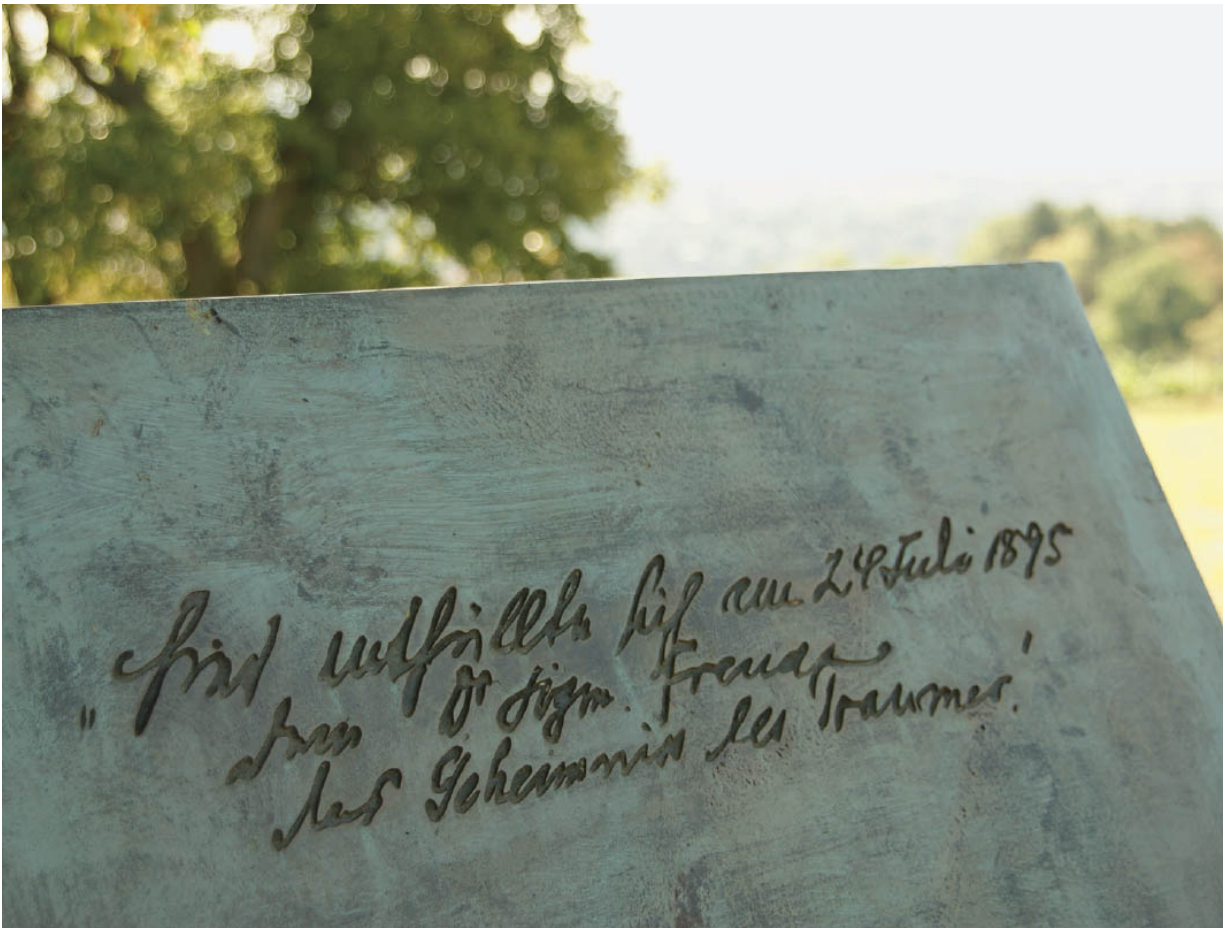 "Hier enthüllte sich am 24 Juli 1895
dem Dr Sigm. Freud
das Geheimnis des Traumes!